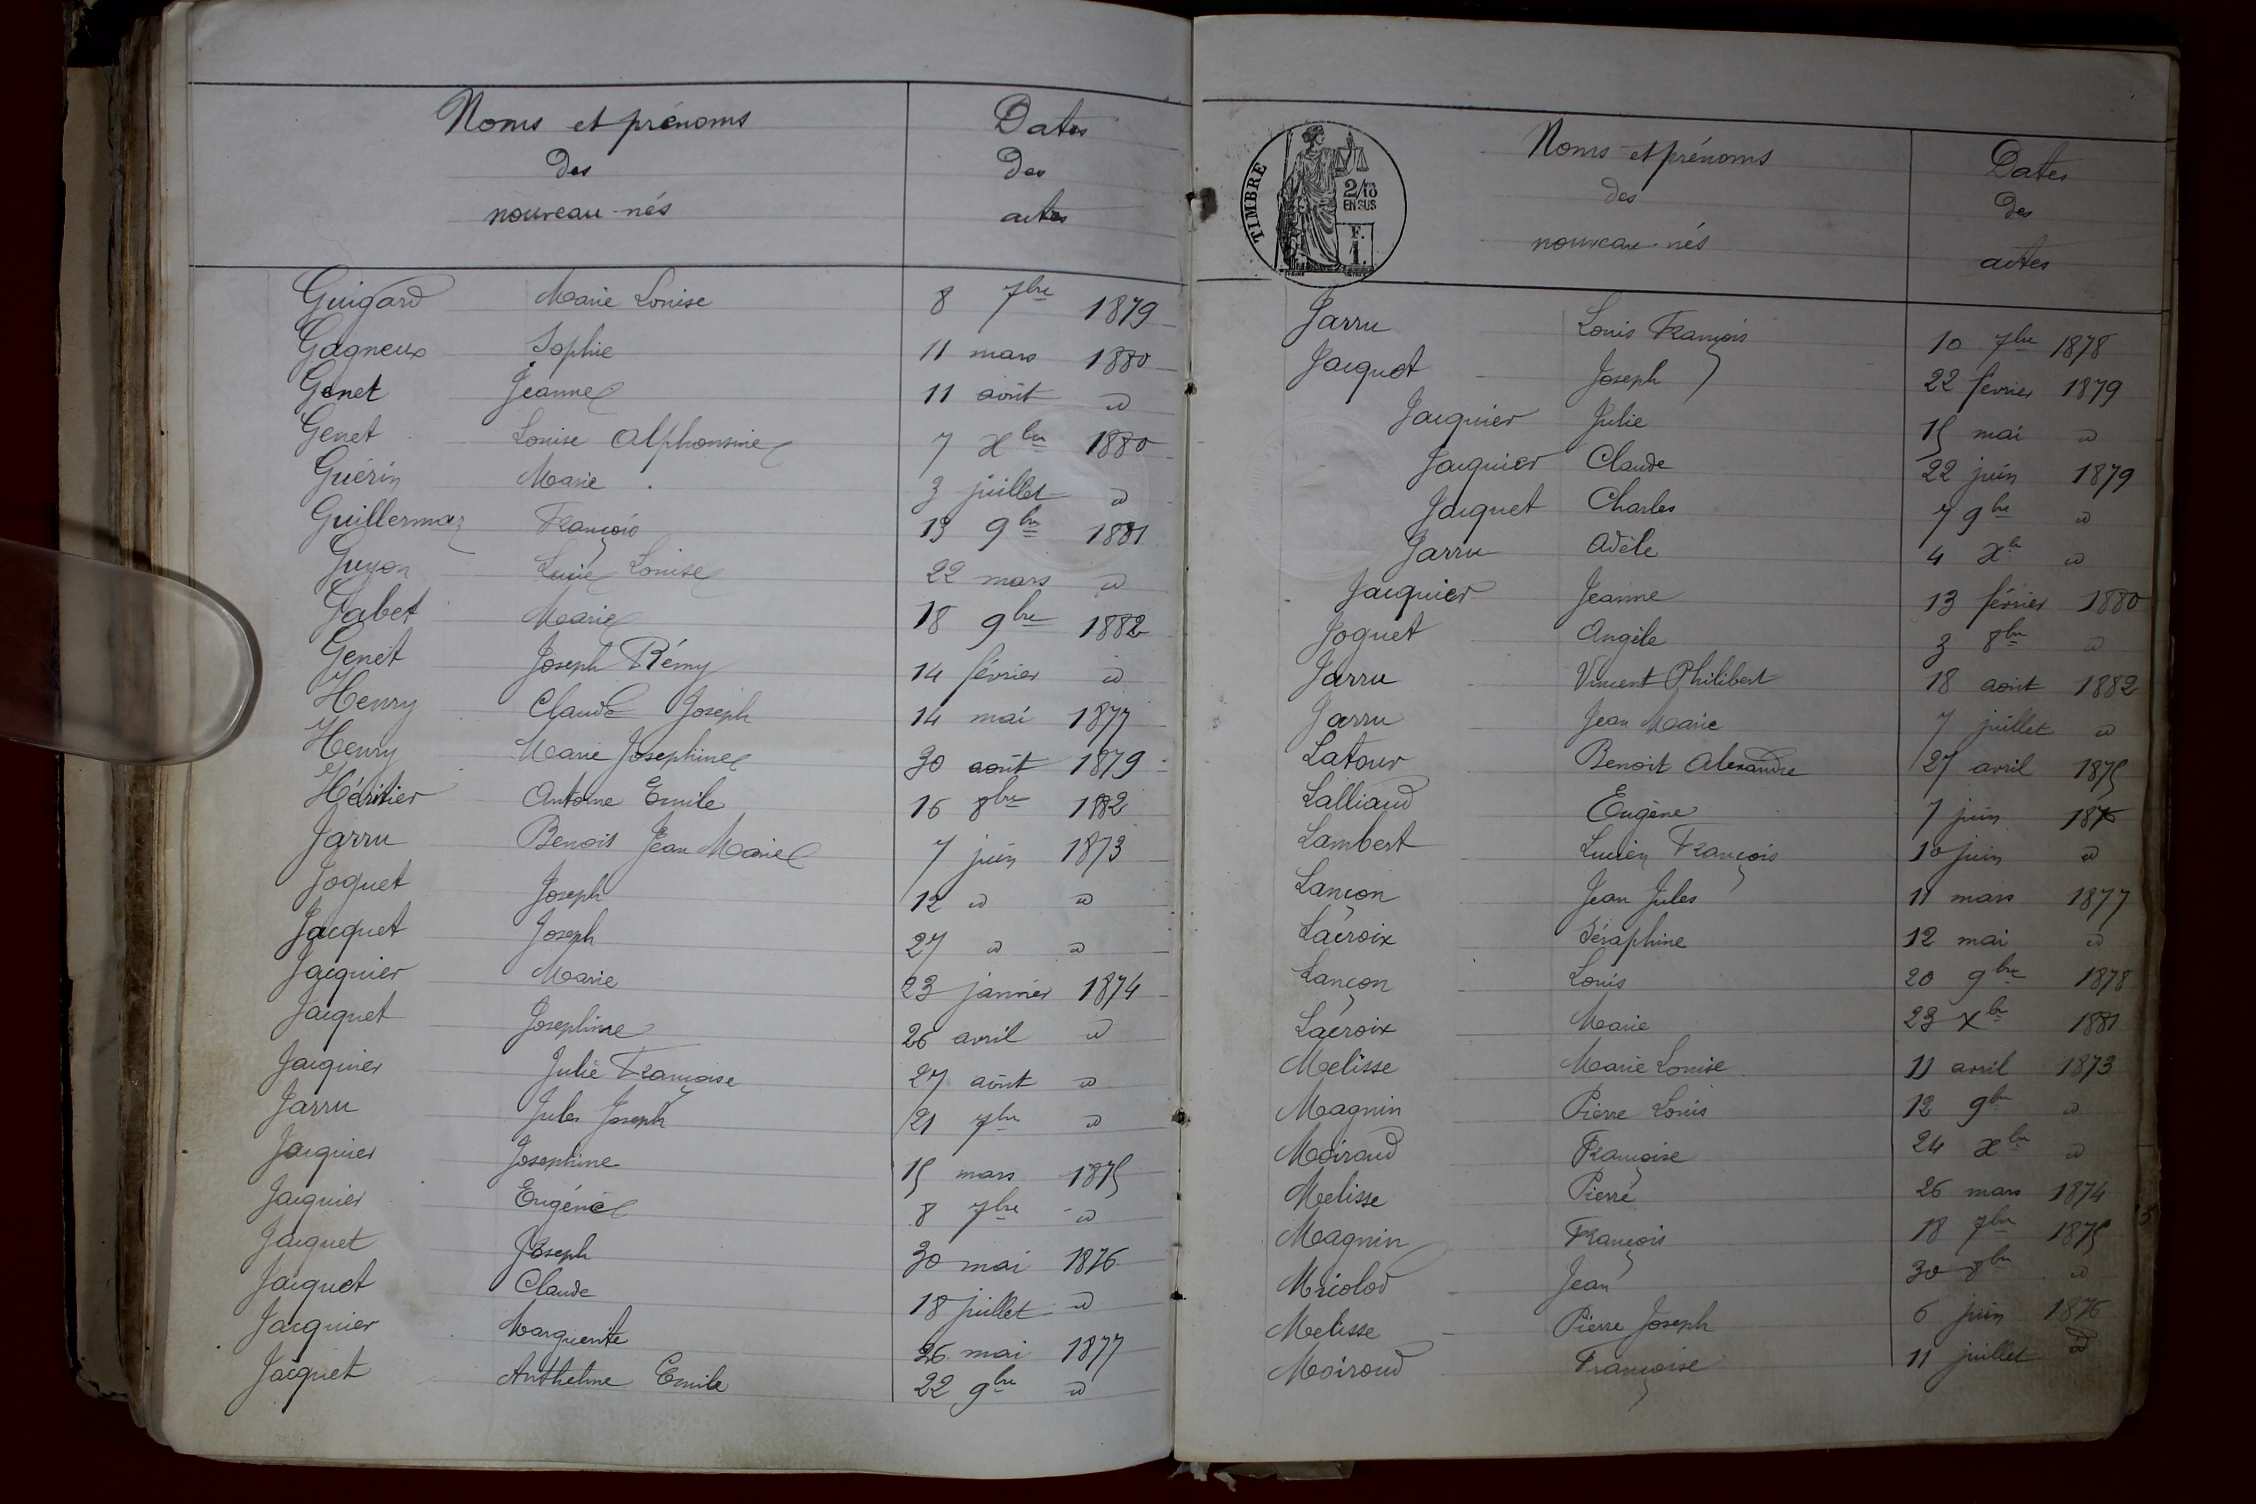 Noms et prénoms
des
nouveau-nés
Dates
des
actes
Guigard Marie Louise 8 7bre 1879
Gagneux Sophie 11 mars 1880
Genet Jeanne 11 août id
Genet Louise Alphonsine 7 Xbre 1880
Guérin Marie 3 juillet id
Guillermaz François 13 9bre 1881
Guyon Lucie Louise 22 mars id
Gabet Marie 18 9bre 1882
Genet Joseph Rémy 14 février id
Henry Claude Joseph 14 mai 1877
Henry Marie Josephine 30 août 1879
Héritier Antoine Emile 16 8bre 1882
Jarru Benoit Jean Marie 7 juin 1873
Joguet Joseph 12 id id
Jacquet Joseph 27 id id
Jacquier Marie 23 janvier 1874
Jacquet Josephine 26 avril id
Jacquier Julie Françoise 27 août id
Jarru Jules Joseph 21 7bre id
Jacquier Josephine 15 mars 1875
Jacquier Eugénie 8 7bre id
Jacquet Joseph 30 mai 1876
Jacquet Claude 18 juillet id
Jacquier Marguerite 26 mai 1877
Jacquet Anthelme Emile 22 9bre id
TIMBRE
2/10
EN SUS
F.
1.
Noms et prénoms
des
nouveau-nés
Dates
des
actes
Jarru Louis François 10 7bre 1878
Jacquet Joseph 22 février 1879
Jacquier Julie 15 mai id
Jacquier Claude 22 juin 1879
Jacquet Charles 7 9bre id
Jarru Adèle 4 Xbre id
Jacquier Jeanne 13 février 1880
Joguet Angèle 3 8bre id
Jarru Vincent Philibert 18 août 1882
Jarru Jean Marie 7 juillet id
Latour Benoit Alexandre 27 avril 1875
Lalliaud Eugène 7 juin 1876
Lambert Lucien François 10 juin id
Lançon Jean Jules 11 mars 1877
Lacroix Séraphine 12 mai id
Lançon Louis 20 9bre 1878
Lacroix Marie 23 Xbre 1881
Melisse Marie Louise 11 avril 1873
Magnin Pierre Louis 12 9bre id
Moiroud Françoise 24 Xbre id
Melisse Pierre 26 mars 1874
Magnin François 18 7bre 1875
Micolod Jean 30 8bre id
Melisse Pierre Joseph 6 juin 1876
Moiroud Françoise 11 juillet id